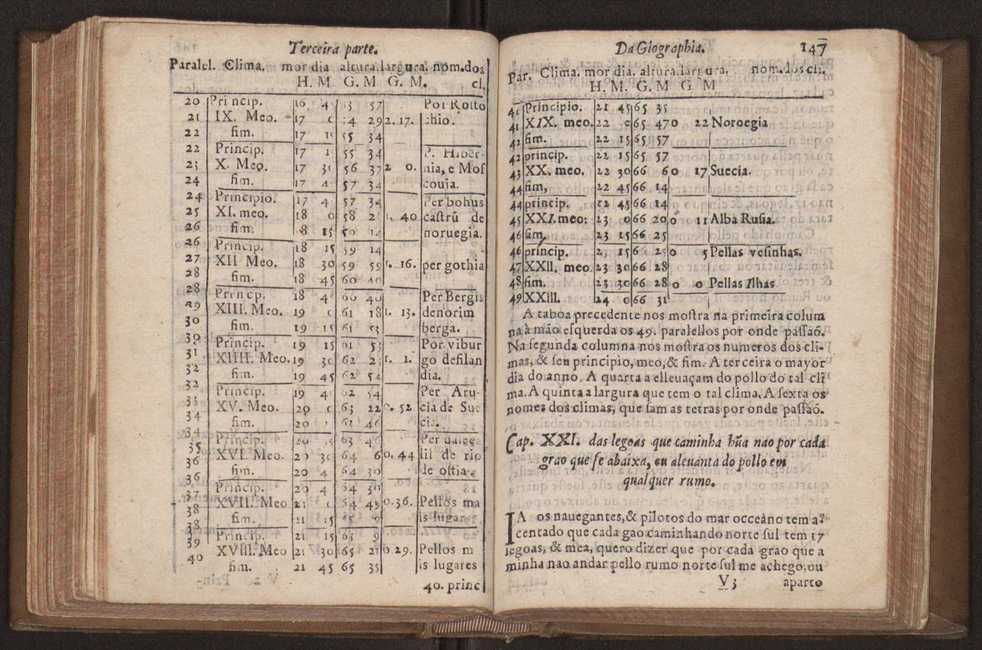 Terceira parte.
Paralel. Clima. mor dia altura. largura. nom. dos
H. M G. M G. M. cl.
20 Princip. 16 4 57 Por Rosto
21 IX. Meo. 17 29 2. 17. chio.
22 fim. 17 55 34
22 Princip. 17 55 34 P. Hiber-
23 X. Meo. 17 56 37 2 0. nia, e Mos
24 fim. 17 4 57 34 couia.
24 Princip. 17 4 57 34 Per bohus
25 XI. meo. 18 0 58 40 castrũ de
26 fim. 15 noruegia.
26 Princip. 18 15 59 14
27 XII Meo. 18 30 59 59 16. per gothia
28 fim. 18 45 60 40
28 Princp. 18 4 60 40 Per Bergis
29 XIII. Meo. 19 0 61 18 1. 13. denorim
30 fim. 19 15 61 53 berga.
30 Princip. 19 15 61 53 Por vibur
31 XIIII. Meo. 19 30 62 1. 1. go desilan
32 fim. 19 45 62 54 dia.
32 Princip. 19 4 62 54 Per Aru-
33 XV. Meo. 20 63 22 52 cia de Sue
34 fim. 20 46 cia.
34 Princip. 20 63 46 Per dalege
35 XVI. Meo. 20 30 64 6 0. 44 lii de rip
36 fim. 20 4 64 30 de ostia.
36 Princip. 20 4 64 30
37 XVII. Meo 21 49 0. 36. Pellos ma
38 fim. 21 15 is lugar
38 Princip. 21 15 65 9
39 XVIII. Meo 21 30 65 21 0 29. Pellos m
40 fim. 21 45 65 35 is lugares
40. princ
Da Giographia. 147
Par. Clima. mor dia. altura. largura. nom. dos cli.
H. M. G. M G M
41 Principio. 21 45 65 35
41 XIX. meo. 22 0 65 47 0 22 Noroegia
42 fim. 22 15 65 57
42 princip. 22 15 65 57
43 XX. meo. 22 30 66 6 0 17 Suecia.
44 fim, 22 45 66 14
44 princip. 22 45 66 14
45 XXI. meo: 23 0 66 20 0 11 Alba Rusia.
46 fim. 23 15 66 25
46 princip. 15 66 25 0 5 Pellas vesinhas.
47 XXII. meo. 23 30 66 28
48 fim. 23 30 66 28 0 0 Pellas Ilhas
49 XXIII. 24 0 66 31
A taboa precedente nos mostra na primeira colum
na à mão esquerda os 49. paralellos por onde passaõ.
Na segunda columna nos mostra os numeros dos cli-
mas, & seu principio, meo, & fim. A terceira o mayor
dia do anno. A quarta a elleuaçam do pollo do tal cli
ma. A quinta a largura que tem o tal clima. A sexta os
nomes dos climas, que sam as terras por onde passaõ.
Cap. XXI. das legoas que caminha hũa nao por cada
grao que se abaixa, ou aleuanta do pollo em
qualquer rumo.
IA os nauegantes, & pilotos do mar occeano tem a?
centado que cada gao caminhando norte sul tem 17
legoas, & mea, quero dizer que por cada grao que a
minha nao andar pello rumo norte sul me achego, ou
V 3 aparto